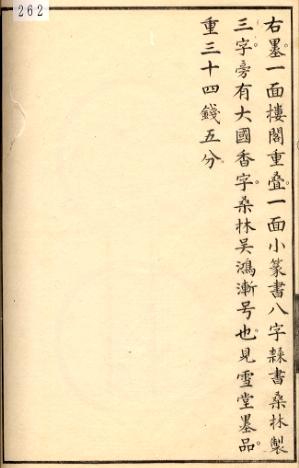 262
右墨一面樓閣重疊一面小篆書八字隸書桑林製
三字旁有大國香字桑林吳鴻漸号也見雪堂墨品
重三十四錢五分